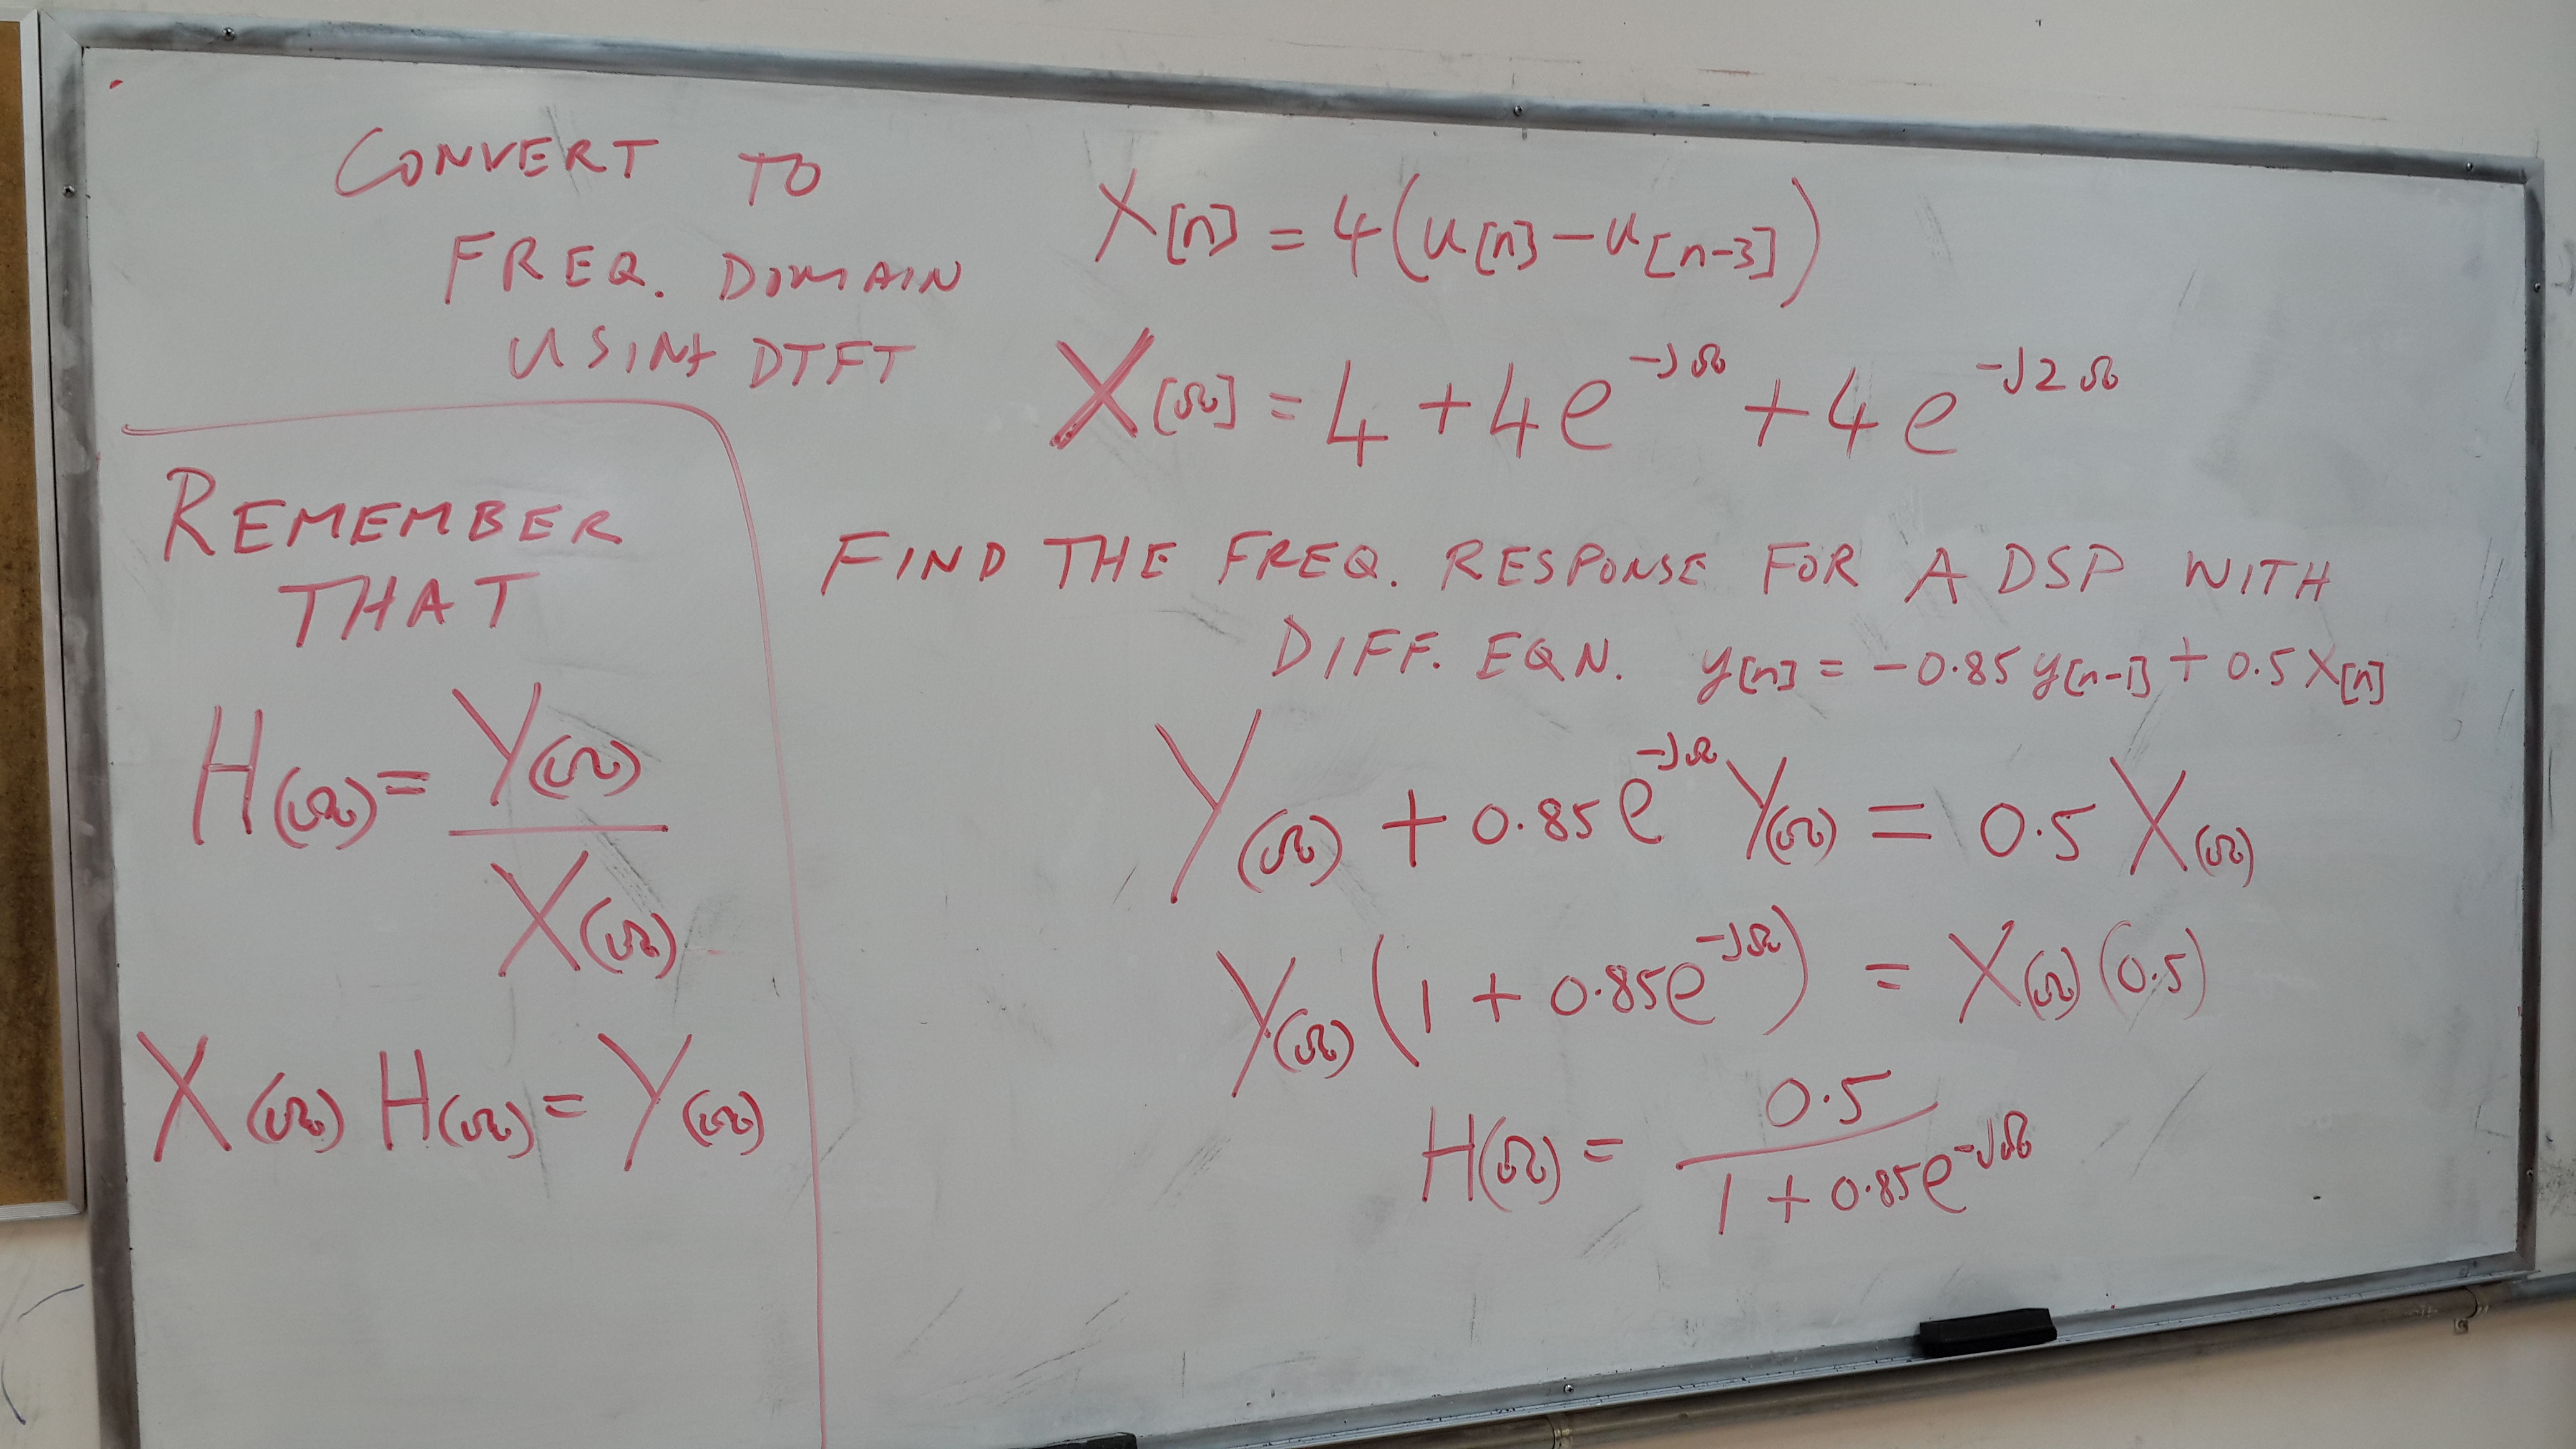 CONVERT TO
FREQ. DOMAIN
USING DTFT
X[n] = 4(u[n] - u[n-3])
X[Ω] = 4 + 4e^-jΩ + 4e^-j2Ω
REMEMBER
THAT
H(Ω) = Y(Ω) / X(Ω)
X(Ω) H(Ω) = Y(Ω)
FIND THE FREQ. RESPONSE FOR A DSP WITH
DIFF. EQN. y[n] = -0.85 y[n-1] + 0.5 X[n]
Y(Ω) + 0.85e^-jΩ Y(Ω) = 0.5 X(Ω)
Y(Ω) (1 + 0.85e^-jΩ) = X(Ω) (0.5)
H(Ω) = 0.5 / 1 + 0.85e^-jΩ